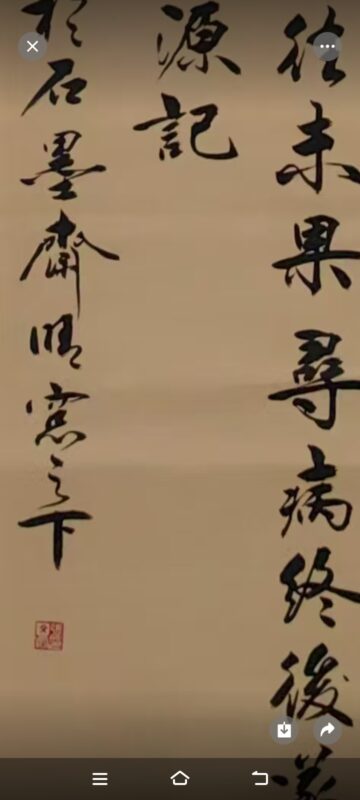 往未果尋病終後
源記
於石墨齋明窓之下